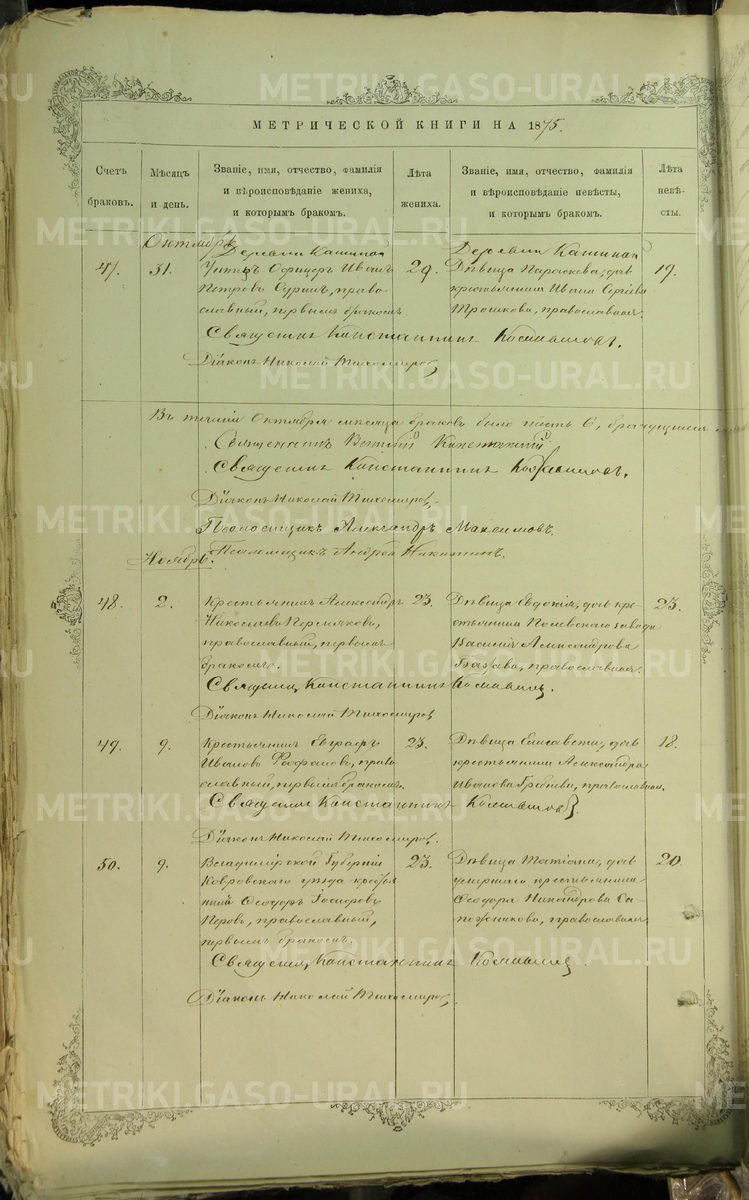 МЕТРИЧЕСКОЙ КНИГИ НА 1875.
Счетъ браковъ.
Мѣсяцъ и день.
Званіе, имя, отчество, фамилія
и вѣроисповѣданіе жениха,
и которымъ бракомъ.
Лѣта жениха.
Званіе, имя, отчество, фамилія
и вѣроисповѣданіе невѣсты,
и которымъ бракомъ.
Лѣта невѣсты.
Октябрь
47. 31.
Деревни Кашиной
Унтеръ Офицеръ Иванъ
Петровъ православный, первымъ бракомъ.
29.
Деревни Кашиной
Дѣвица Параскева, дочь
крестьянина Ивана Сергѣева
Трошкова, православная.
19.
Священникъ Константинъ
Діаконъ Николай Тихомировъ
Въ теченіи Октября мѣсяца браковъ было шесть 6,
Священникъ
Священникъ Константинъ
Діаконъ Николай Тихомировъ,
Псаломщикъ Александръ Максимовъ.
Псаломщикъ Андрей Никитинъ.
Ноябрь.
48. 2.
Крестьянинъ Александръ
Николаевъ Пермяковъ,
православный, первымъ
бракомъ.
23.
Дѣвица Евдокія, дочь кре-
стьянина Полевскаго завода
Василія Александрова
православная.
23.
Священникъ Константинъ
Діаконъ Николай Тихомировъ
49. 9.
Крестьянинъ Евграфъ
Ивановъ православный, первымъ бракомъ.
23.
Дѣвица Елисавета, дочь
крестьянина Александра
Иванова православная.
18.
Священникъ Константинъ
Діаконъ Николай Тихомировъ.
50. 9.
Владимірской Губерніи
Ковровскаго уѣзда крестья-
нинъ Ѳеодоръ
Перовъ, православный,
первымъ бракомъ.
23.
Дѣвица Татіана, дочь
умершаго крестьянина
Ѳеодора Никандрова Са-
пожникова, православная,
20
Священникъ Константинъ
Діаконъ Николай Тихомировъ.
METRIKI.GASO-URAL.RU